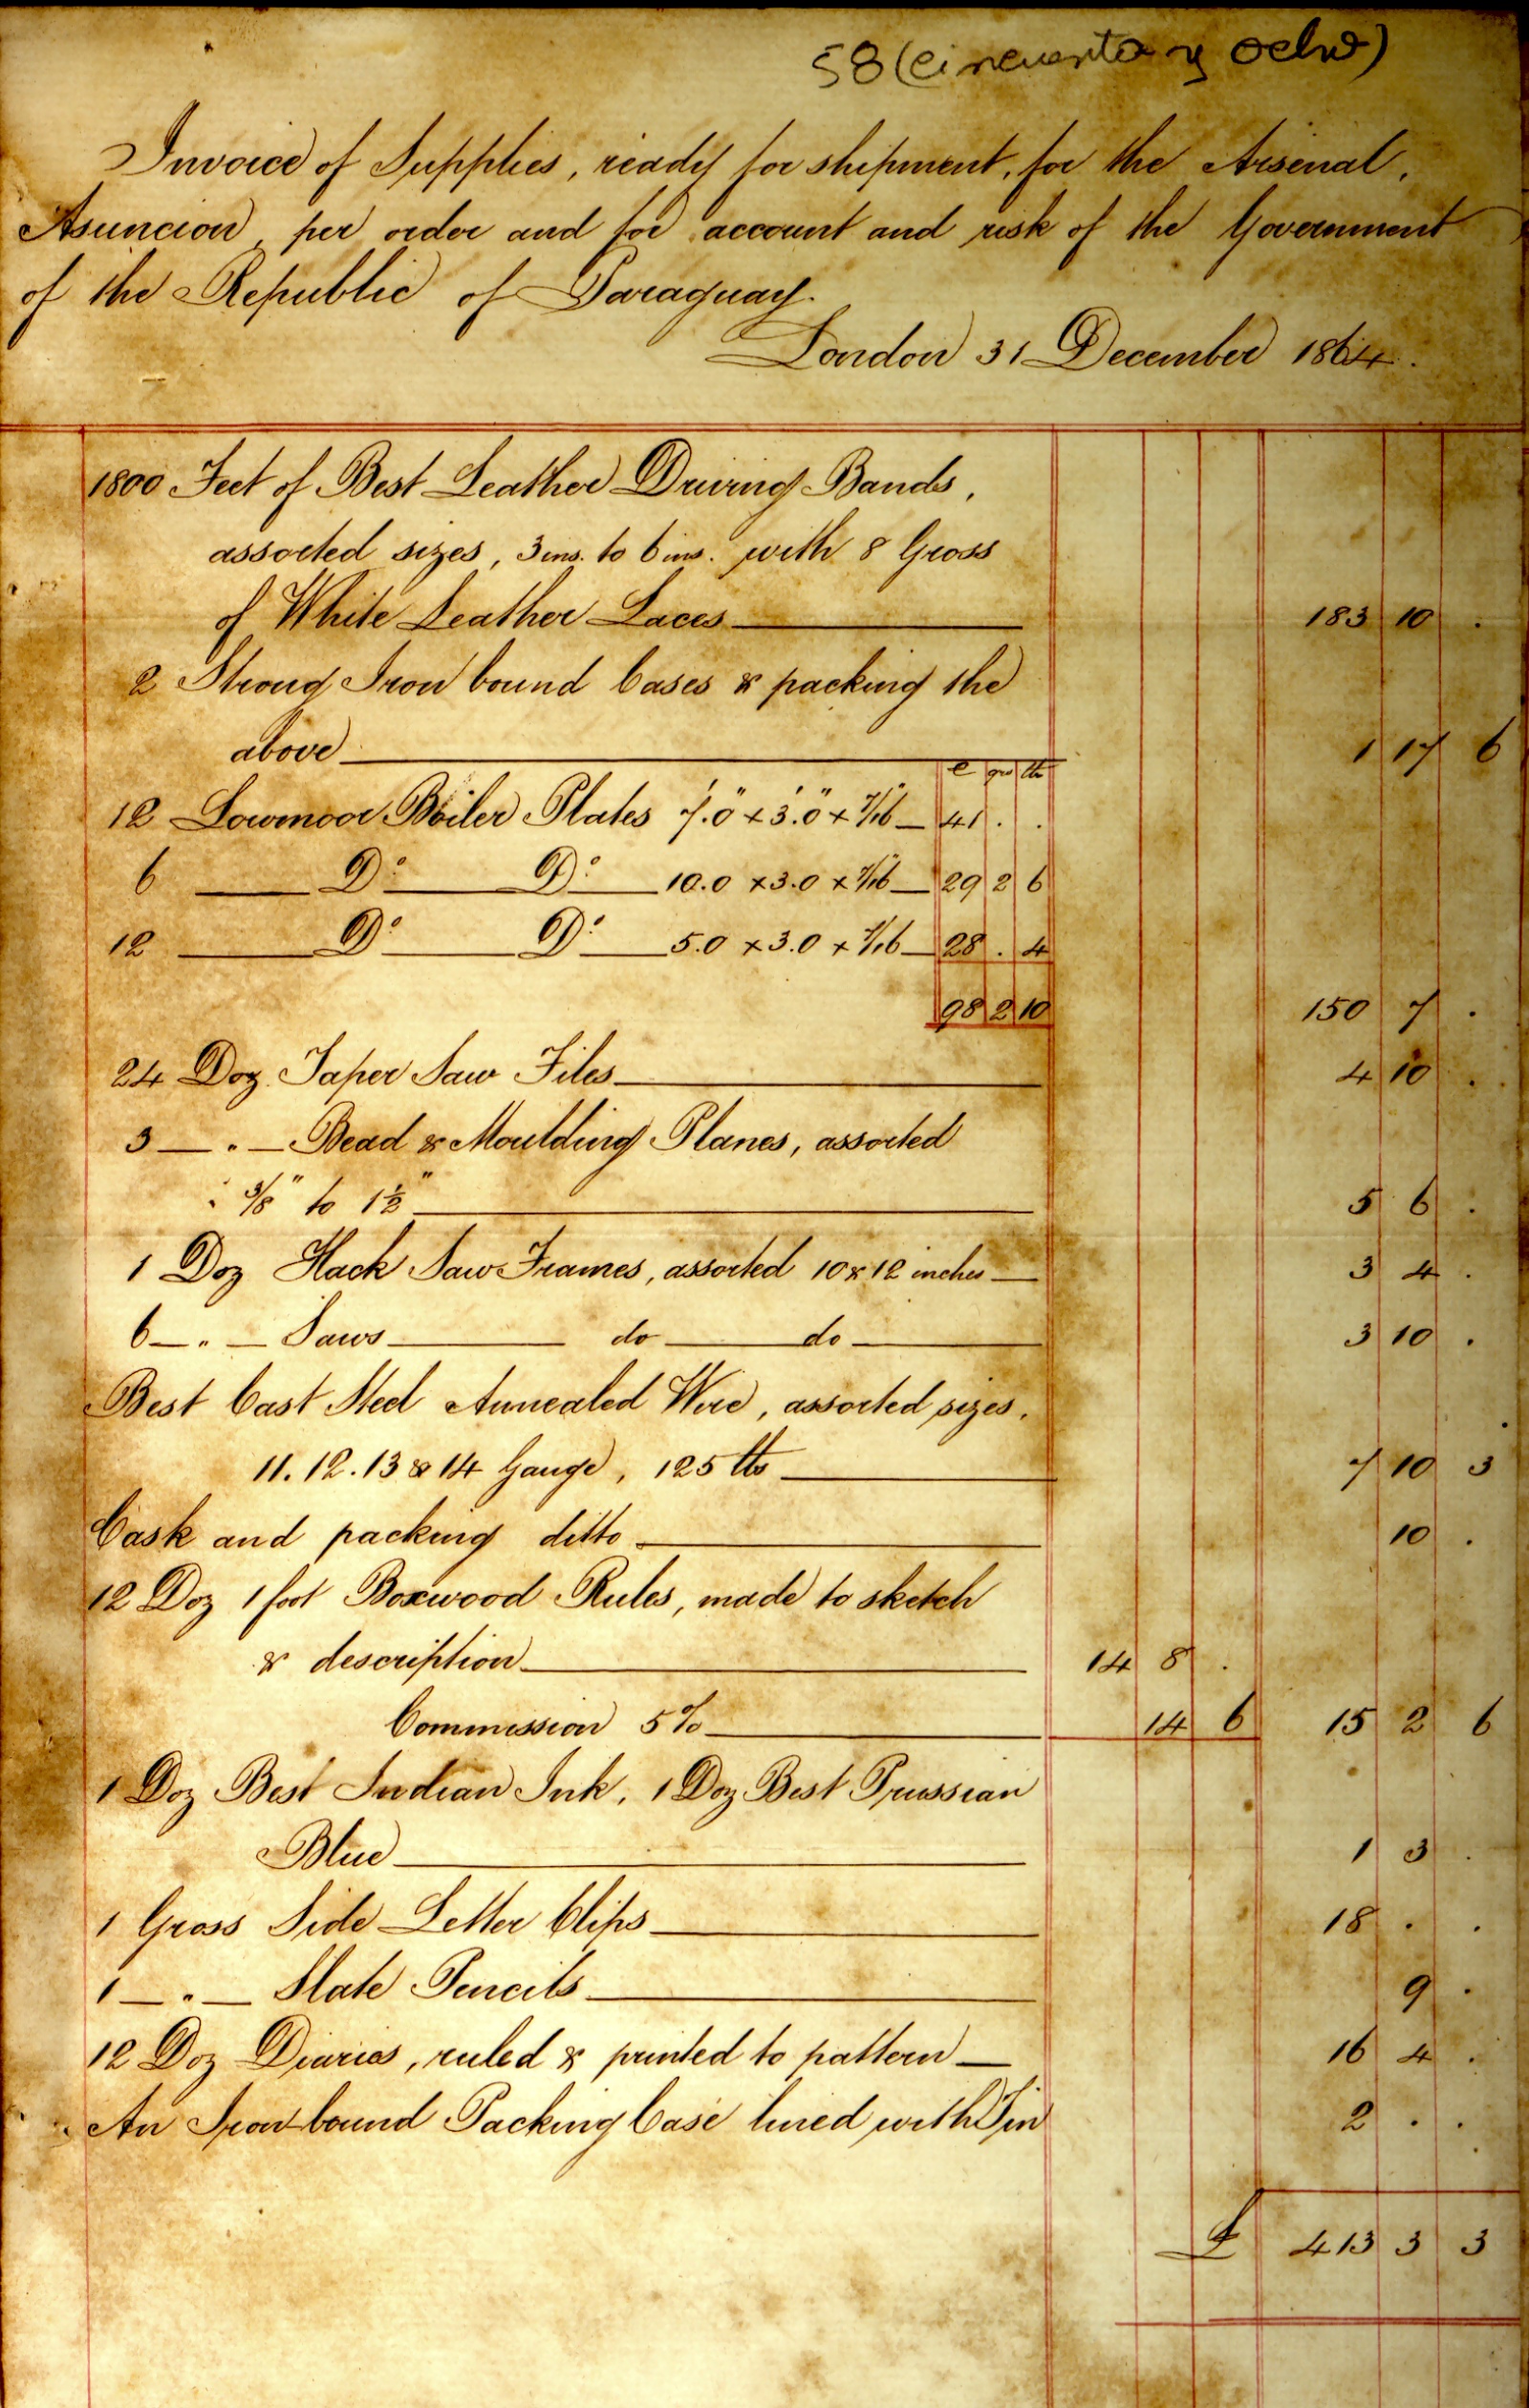 58 (cincuenta y ocho)
Invoice of Supplies, ready for shipment, for the Arsenal,
Asuncion, per order and for account and risk of the Government
of the Republic of Paraguay.
London 31 December 1864.
1800 Feet of Best Leather Driving Bands,
assorted sizes, 3 ins. to 6 ins. with 8 Gross
of White Leather Laces 183 10 .
2 Strong Iron bound Cases & packing the
above 1 17 6
c qrs lbs
12 Lowmoor Boiler Plates 7'.0" x 3'.0" x 7/16" 41 . .
6 Do. Do. 10.0 x 3.0 x 7/16" 29 2 6
12 Do. Do. 5.0 x 3.0 x 7/16 28 . 4
98 2 10 150 7 .
24 Doz. Taper Saw Files 4 10 .
3 — " — Bead & Moulding Planes, assorted
3/8" to 1½" 5 6 .
1 Doz Hack Saw Frames, assorted 10 & 12 inches 3 4 .
6 — " — Saws do do 3 10 .
Best Cast Steel Annealed Wire, assorted sizes,
11. 12. 13 & 14 Gauge, 125 lbs 7 10 3
Cask and packing ditto 10 .
12 Doz 1 foot Boxwood Rules, made to sketch
& description 14 8 .
Commission 5% 14 6 15 2 6
1 Doz Best Indian Ink, 1 Doz Best Prussian
Blue 1 3 .
1 Gross Side Letter Clips 18 . .
1 — " — Slate Pencils 9 .
12 Doz Diaries, ruled & printed to pattern 16 4 .
An Iron bound Packing Case lined with Tin 2 . .
£ 413 3 3